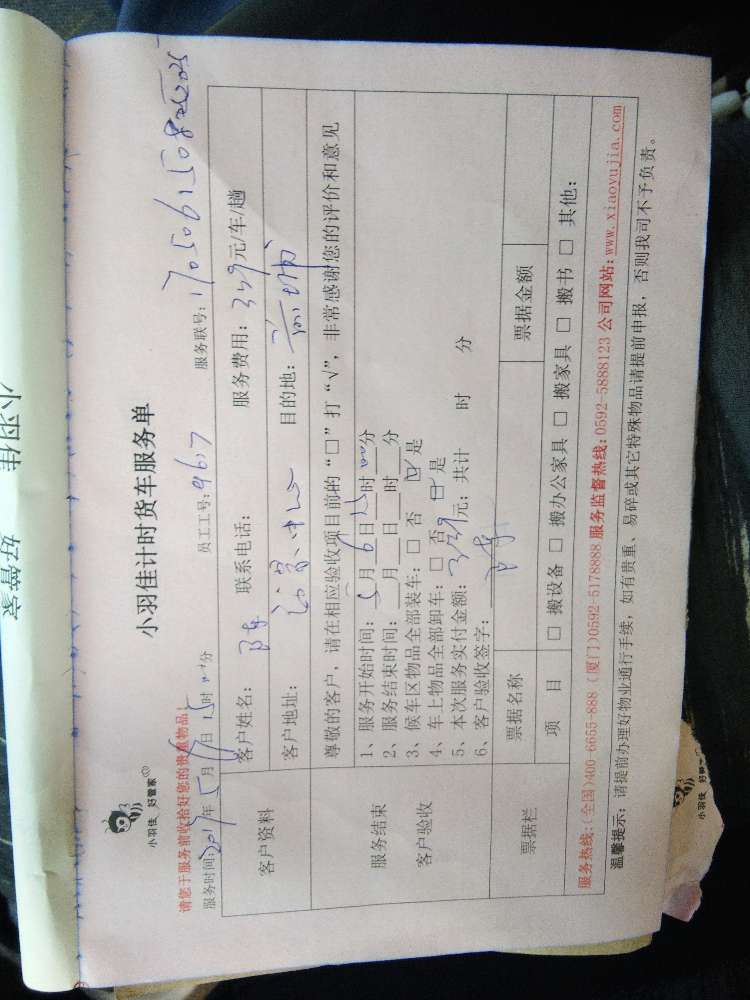 小羽佳 好管家
小羽佳 好管家
小羽佳计时货车服务单
请您于服务前收拾好您的贵重物品!
服务时间: 2017年5月 日15时00分 员工工号: 9617 服务联号: 1705061508
客户资料
客户姓名: 陈 联系电话: 服务费用: 339元/车/趟
客户地址: 目的地:
服务结束
客户验收
尊敬的客户,请在相应验收项目前的“□”打“√”,非常感谢您的评价和意见
1、服务开始时间: 5月6日15时00分
2、服务结束时间: 月 日 时 分
3、候车区物品全部装车: □ 否 ☑ 是
4、车上物品全部卸车: □ 否 ☑ 是
5、本次服务实付金额: 339元; 共计 时 分
6、客户验收签字: 陈
票据栏 票据名称 票据金额
项 目 □ 搬设备 □ 搬办公家具 □ 搬家具 □ 搬书 □ 其他:
服务热线:(全国)400-6655-888 (厦门)0592-5178888 服务监督热线: 0592-5888123 公司网站: www.xiaoyujia.com
温馨提示: 请提前办理好物业通行手续, 如有贵重、易碎或其它特殊物品请提前申报, 否则我司不予负责。
小羽佳 好管家